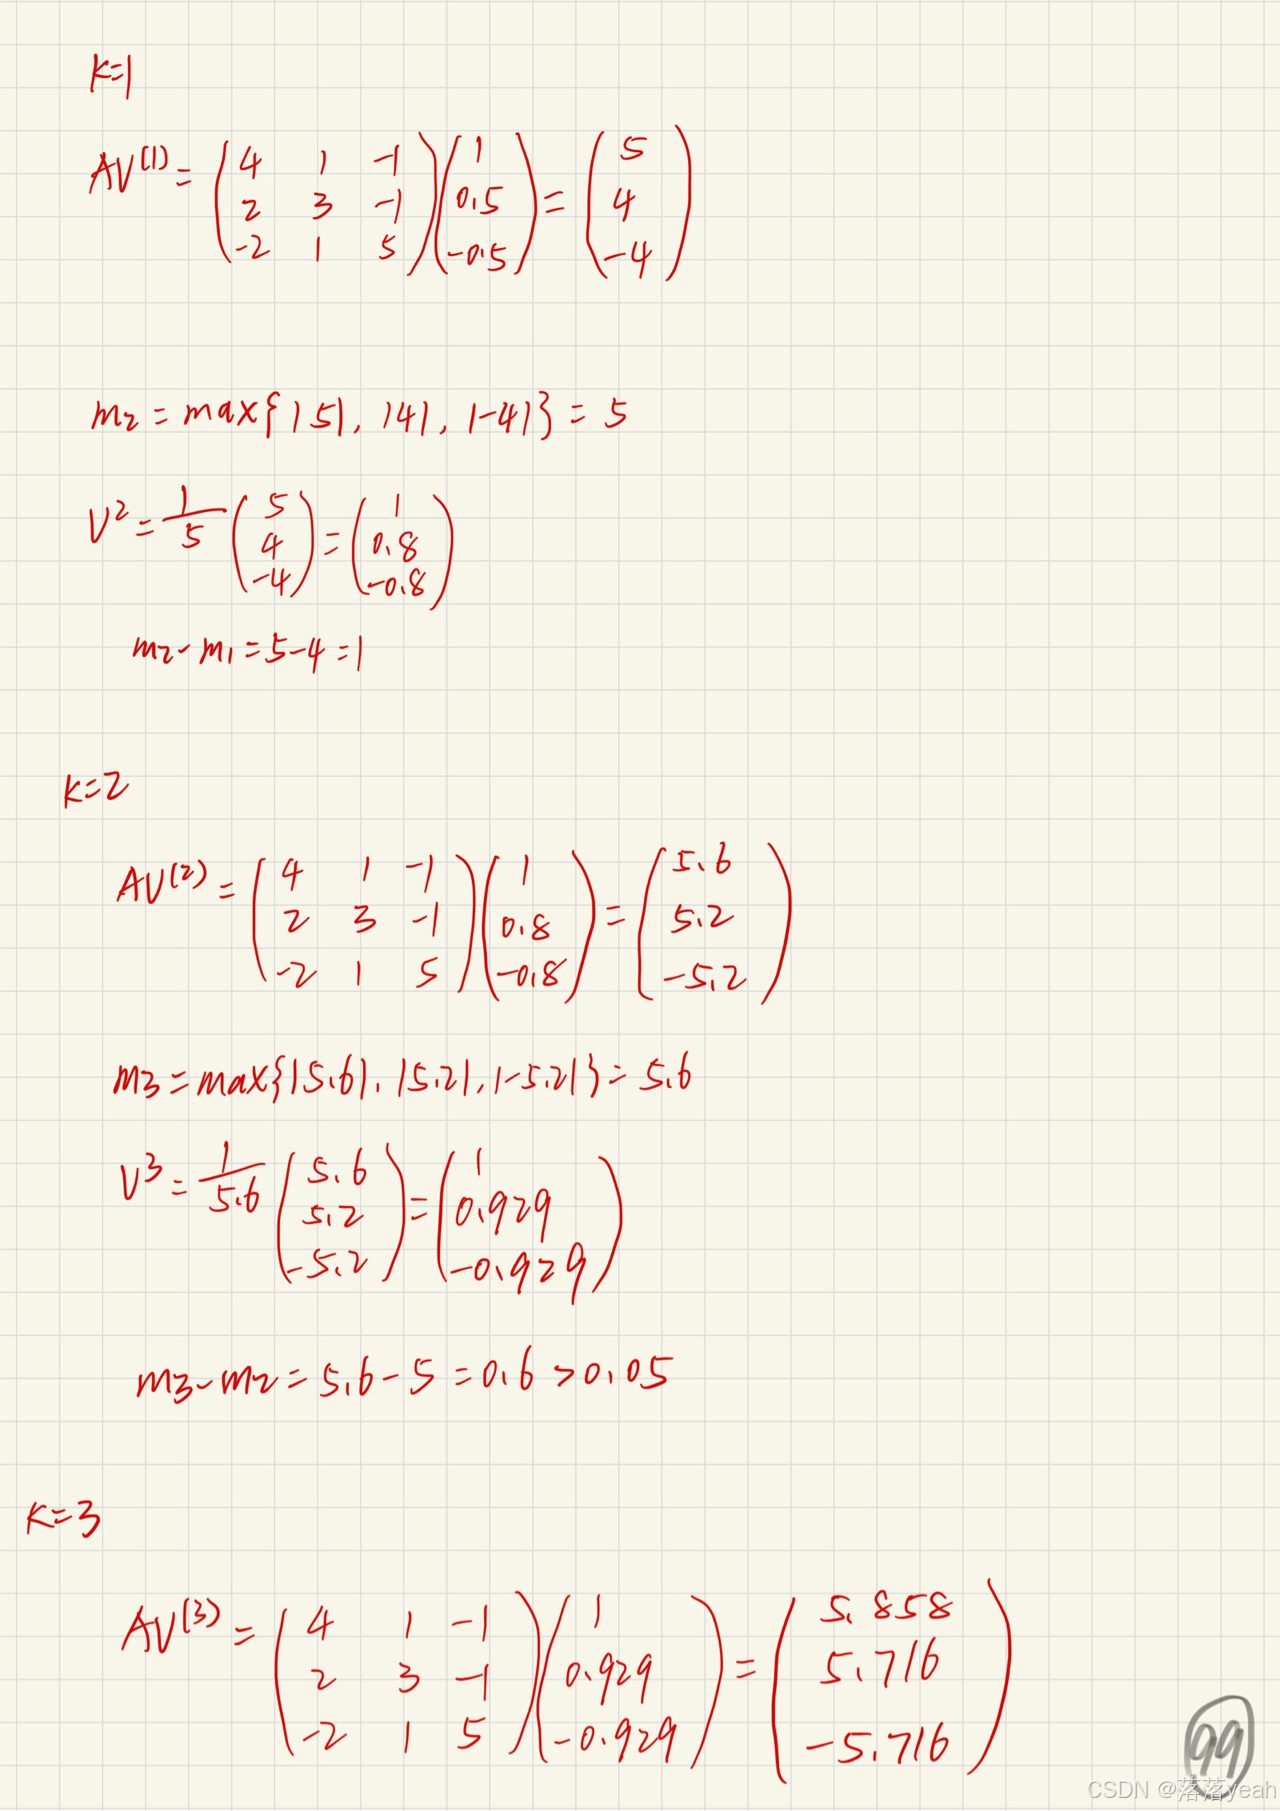 K=1
AV^(1) = (4 1 -1; 2 3 -1; -2 1 5)(1; 0.5; -0.5) = (5; 4; -4)
m₂ = max{|5|, |4|, |-4|} = 5
V² = 1/5 (5; 4; -4) = (1; 0.8; -0.8)
m₂-m₁=5-4=1
K=2
AV^(2) = (4 1 -1; 2 3 -1; -2 1 5)(1; 0.8; -0.8) = (5.6; 5.2; -5.2)
m₃ = max{|5.6|, |5.2|, |-5.2|} = 5.6
V³ = 1/5.6 (5.6; 5.2; -5.2) = (1; 0.929; -0.929)
m₃-m₂ = 5.6-5 = 0.6 > 0.05
K=3
AV^(3) = (4 1 -1; 2 3 -1; -2 1 5)(1; 0.929; -0.929) = (5.858; 5.716; -5.716)
99
CSDN @落落yeah